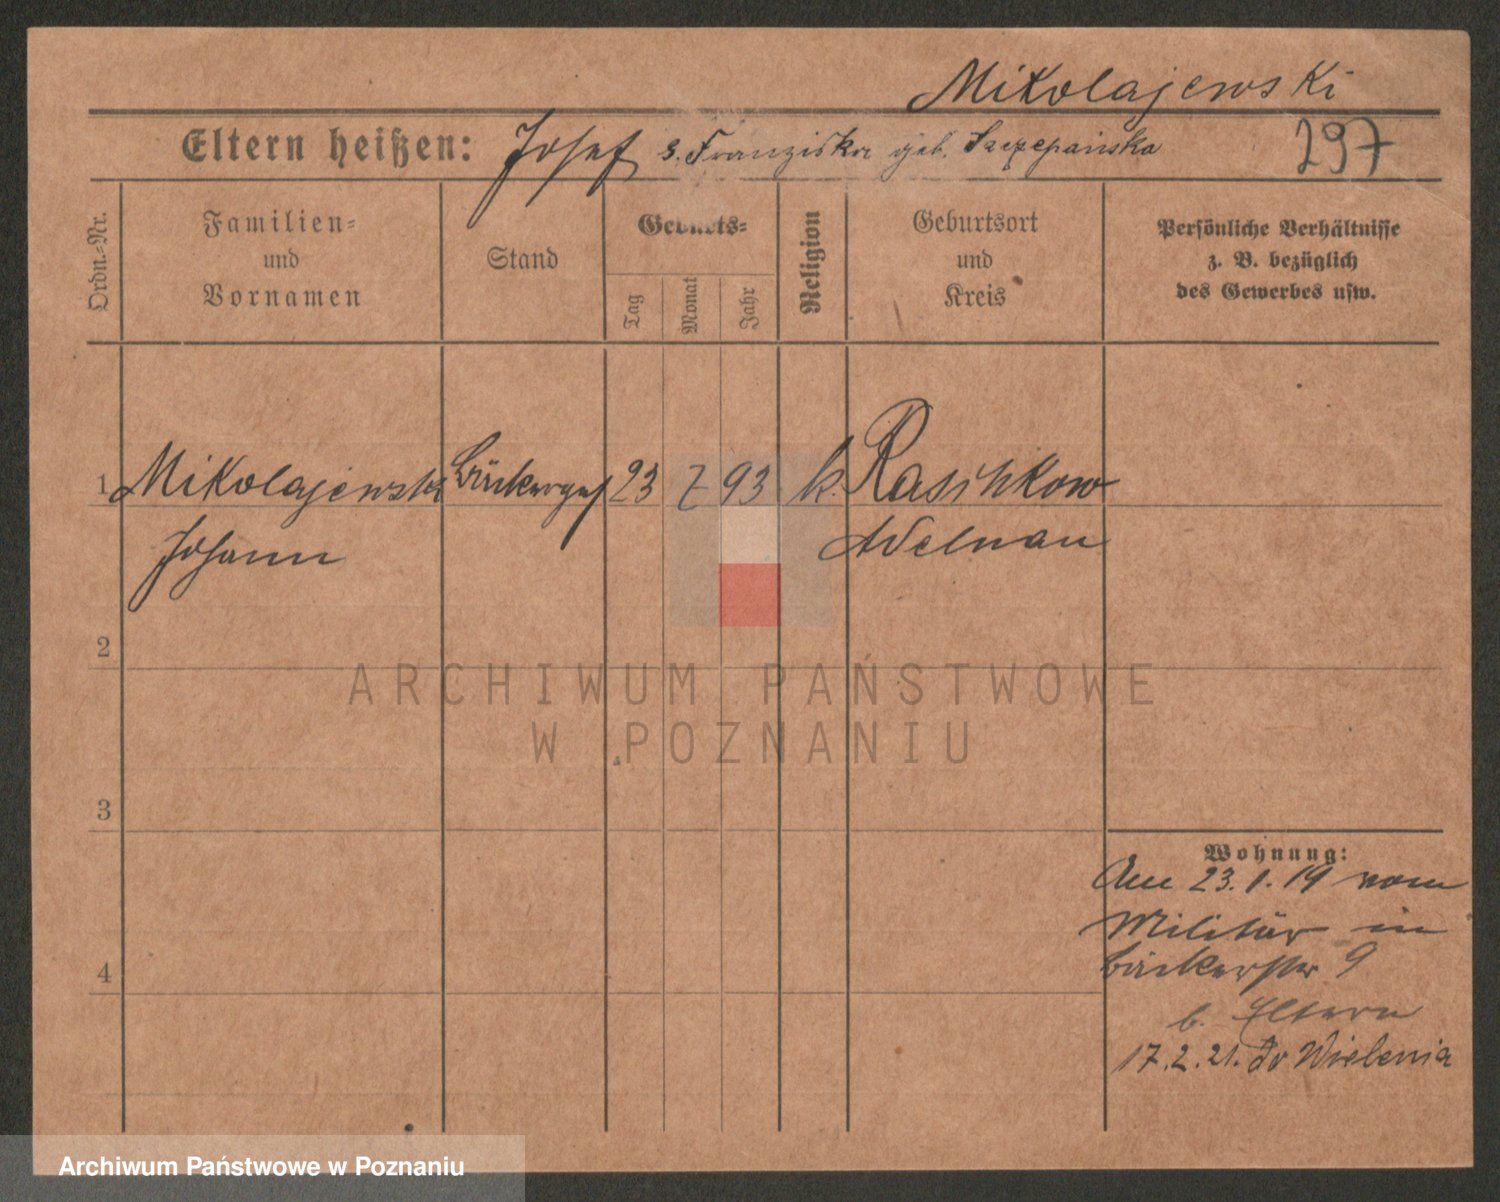 Mikolajewski
Eltern heißen: Josef u. Franziska geb. Szczepańska 297
Ordn.-Nr.
Familien-
und
Vornamen
Stand
Geburts-
Tag
Monat
Jahr
Religion
Geburtsort
und
Kreis
Persönliche Verhältnisse
z. B. bezüglich
des Gewerbes usw.
1 Mikolajewski Bäckerges 23 7 93 k. Raschkow
Johann Adelnau
2
3
4
Wohnung:
Am 23.1.19 vom
Militär in
Bäckerstr 9
b. Eltern
17.2.21. do Wielenia
ARCHIWUM PAŃSTWOWE
W POZNANIU
Archiwum Państwowe w Poznaniu